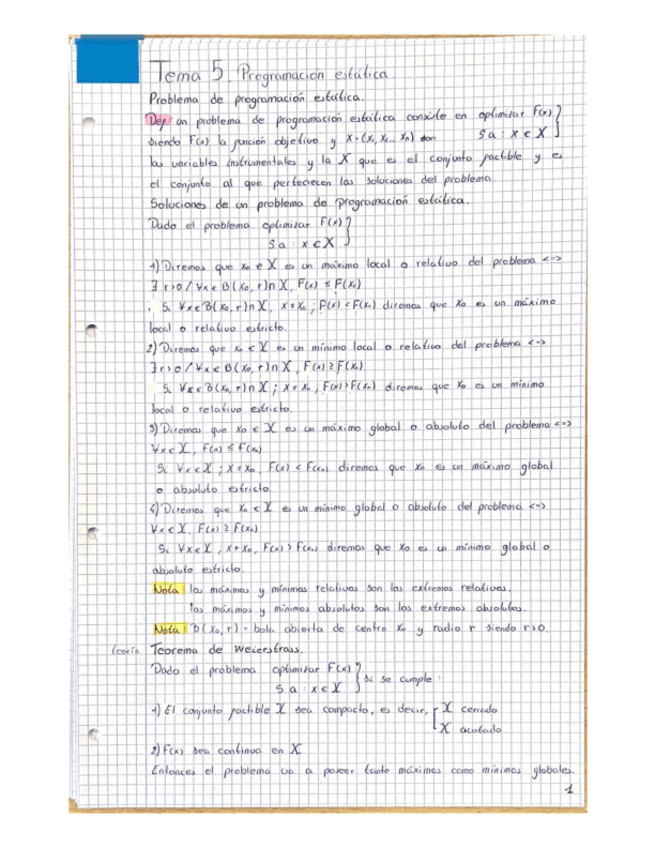 Tema 5. Programación estática.
Problema de programación estática.
Def: un problema de programación estática consiste en optimizar F(x) }
siendo F(x) la función objetivo y X=(x₁, x₂... xₙ) son s.a: x ∈ X
las variables instrumentales y la X que es el conjunto factible y es
el conjunto al que pertenecen las soluciones del problema.
Soluciones de un problema de programación estática.
Dado el problema optimizar F(x) }
s.a: x ∈ X
1) Diremos que x₀ ∈ X es un máximo local o relativo del problema <=>
∃ r>0 / ∀x ∈ B(x₀, r) ∩ X, F(x) ≤ F(x₀)
. Si ∀x ∈ B(x₀, r) ∩ X, x ≠ x₀ ; F(x) < F(x₀) diremos que x₀ es un máximo
local o relativo estricto.
2) Diremos que x₀ ∈ X es un mínimo local o relativo del problema <=>
∃ r>0 / ∀x ∈ B(x₀, r) ∩ X, F(x) ≥ F(x₀)
Si ∀x ∈ B(x₀, r) ∩ X ; x ≠ x₀, F(x) > F(x₀) diremos que x₀ es un mínimo
local o relativo estricto.
3) Diremos que x₀ ∈ X es un máximo global o absoluto del problema <=>
∀x ∈ X, F(x) ≤ F(x₀)
Si ∀x ∈ X ; x ≠ x₀, F(x) < F(x₀) diremos que x₀ es un máximo global
o absoluto estricto.
4) Diremos que x₀ ∈ X es un mínimo global o absoluto del problema <=>
∀x ∈ X, F(x) ≥ F(x₀)
Si ∀x ∈ X ; x ≠ x₀, F(x) > F(x₀) diremos que x₀ es un mínimo global o
absoluto estricto.
Nota: los máximos y mínimos relativos son los extremos relativos.
los máximos y mínimos absolutos son los extremos absolutos.
Nota: B(x₀, r) = bola abierta de centro x₀ y radio r siendo r>0.
teoría Teorema de Weierstrass.
Dado el problema optimizar F(x) } si se cumple:
s.a: x ∈ X
1) El conjunto factible X sea compacto, es decir, { X cerrado
X acotado
2) F(x) sea continua en X
Entonces el problema va a poseer tanto máximos como mínimos globales.
1